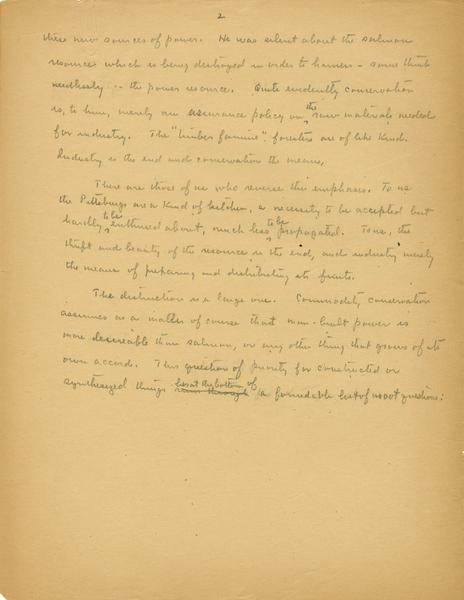 2
these new sources of power. He was silent about the salmon
resource which is being destroyed in order to harness - some think
needlessly - the power resource. Quite evidently conservation
is, to him, merely an assurance policy on the raw materials needed
for industry. The "timber famine" foresters are of like kind.
Industry is the end and conservation the means.
There are those of us who reverse this emphasis. To us
the Pittsburgs are a kind of kitchen, a necessity to be accepted but
hardly to be enthused about, much less to be propagated. To us, the
thrift and beauty of the resource is the end, and industry merely
the means of preparing and distributing its fruits.
The distinction is a large one. Commodity conservation
assumes as a matter of course that man-built power is
more desireable than salmon, or any other thing that grows of its
own accord. This question of priority for constructed or
synthesized things lies at the bottom of runs through a formidable list of moot questions: